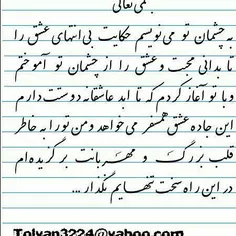 به چشمان تو می نویسم حکایت بی انتهای عشق را
تا بدانی محبت و عشق را از چشمان تو آموختم
و با تو آغاز کردم که تا ابد عاشقانه دوستت دارم
این جاده عشق همسفر می خواهد و من تو را به خاطر
قلب بزرگ و مهربانت برگزیده ام
در این راه سخت تنهایم نگذار ...
Tolyan3224@yahoo.com